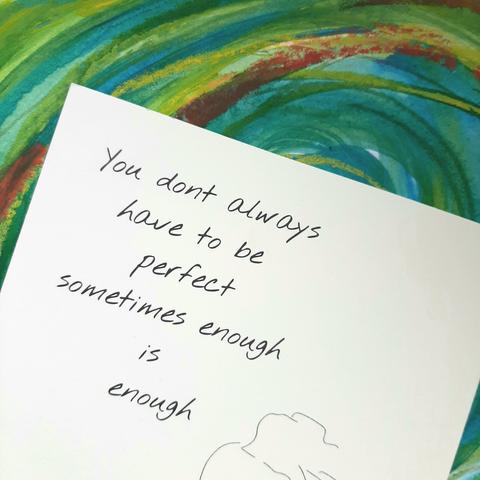 You dont always
have to be
perfect
sometimes enough
is
enough